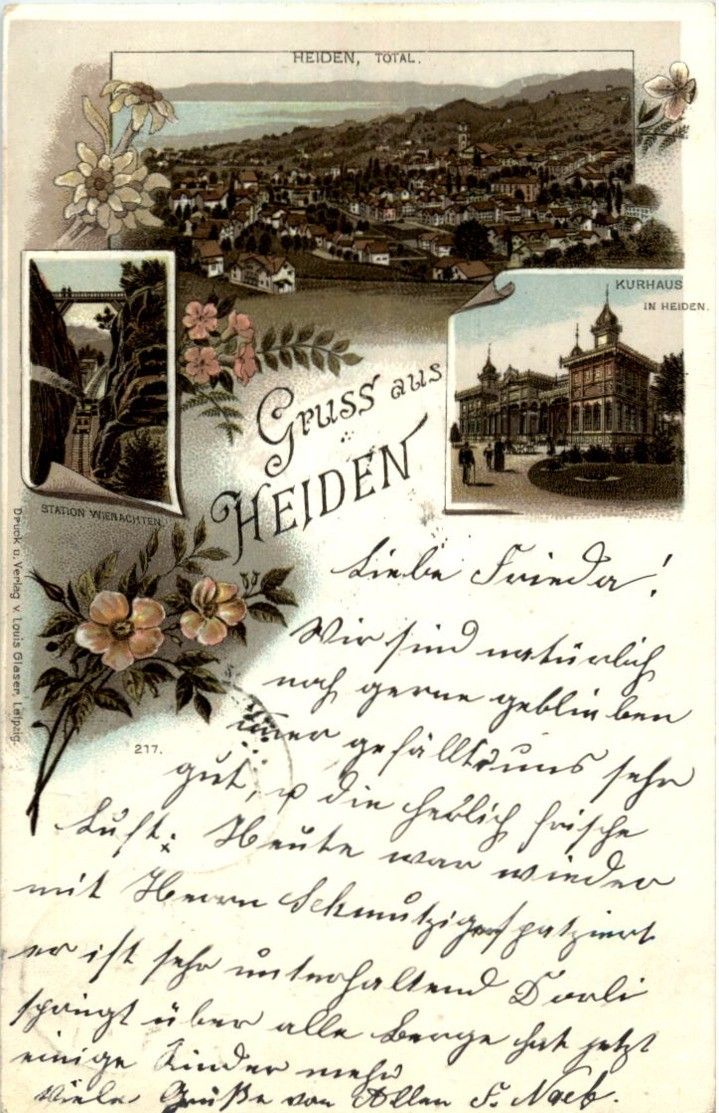 HEIDEN, TOTAL.
KURHAUS
IN HEIDEN.
STATION WIENACHTEN.
Gruss aus
HEIDEN
Druck u. Verlag v. Louis Glaser, Leipzig.
217.
Liebe Frieda!
Wir sind natürlich
noch gerne geblieben
gefällt uns sehr
gut, u die herlich frische
Luft. Heute war wieder
mit Herrn Schmutziger spatziert
er ist sehr unterhaltend Dorli
springt über alle Berge hat jetzt
einige Kinder mehr
Viele Grüße von Allen F. Naef.